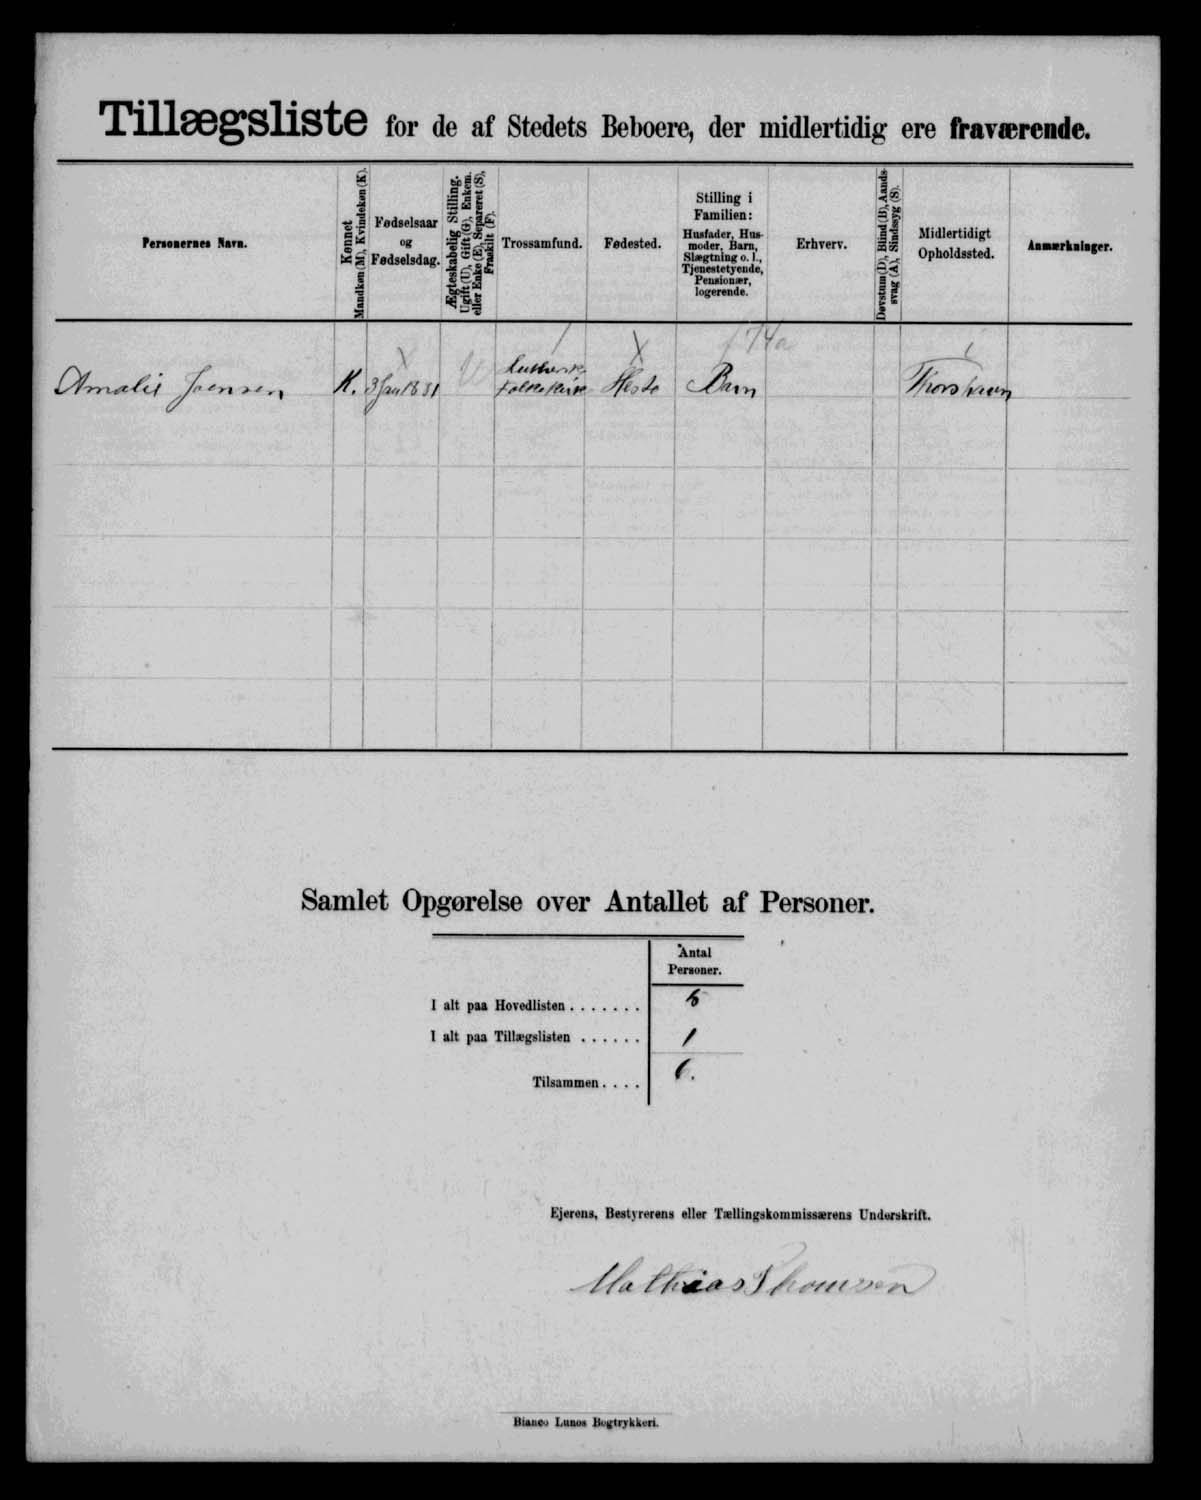 Tillægsliste for de af Stedets Beboere, der midlertidig ere fraværende.
Personernes Navn.
Kønnet
Mandkøn (M), Kvindekøn (K).
Fødselsaar
og
Fødselsdag.
Ægteskabelig Stilling.
Ugift (U), Gift (G), Enkem.
eller Enke (E), Separeret (S),
Fraskilt (F).
Trossamfund.
Fødested.
Stilling i
Familien:
Husfader, Hus-
moder, Barn,
Slægtning o. l.,
Tjenestetyende,
Pensionær,
logerende.
Erhverv.
Døvstum (D), Blind (B), Aands-
svag (A), Sindssyg (S).
Midlertidigt
Opholdssted.
Anmærkninger.
74a
Amalie Joensen K. 3 Jan 18 U Luthersk
Folkekirke Hestø Barn Thorshavn
Samlet Opgørelse over Antallet af Personer.
Antal
Personer.
I alt paa Hovedlisten . . . . . . . 5
I alt paa Tillægslisten . . . . . . 1
Tilsammen . . . . 6.
Ejerens, Bestyrerens eller Tællingskommissærens Underskrift.
Mathias Thomsen
Bianco Lunos Bogtrykkeri.